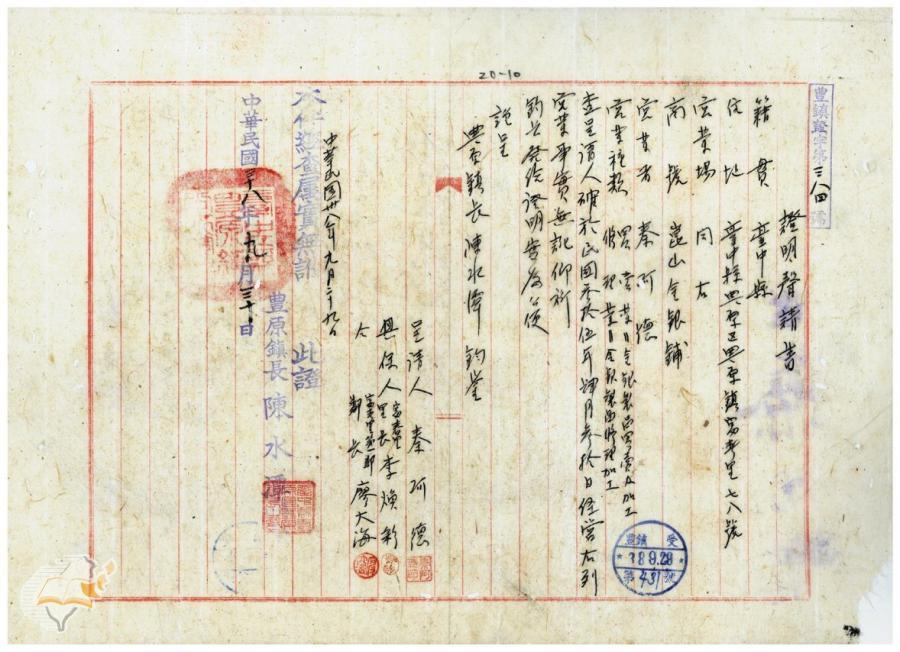 20-10
豐鎮證字第三八四號
證明聲請書
籍貫 臺中縣
住地 臺中縣豐原區豐原鎮富春里七八號
營業場 同右
商號 崑山金銀鋪
營業者 秦阿德
營業種類 買賣業 金銀製品買賣及加工
修理業 金銀製品修理加工
查呈請人確於民國叁拾伍年肆月叁拾日經營右列
營業事實無訛仰祈
鈞長發給證明書為公便
謹呈
豐原鎮長 陳水潭 鈞鑒
呈請人 秦阿德
具保人 里長 李煥彩
仝 鄰長 廖大海
中華民國卅八年九月二十九日
右件經查屬實無訛 此證
豐原鎮長 陳水潭
中華民國三十八年九月三十日
豐鎮 受
38.9.29
第431號